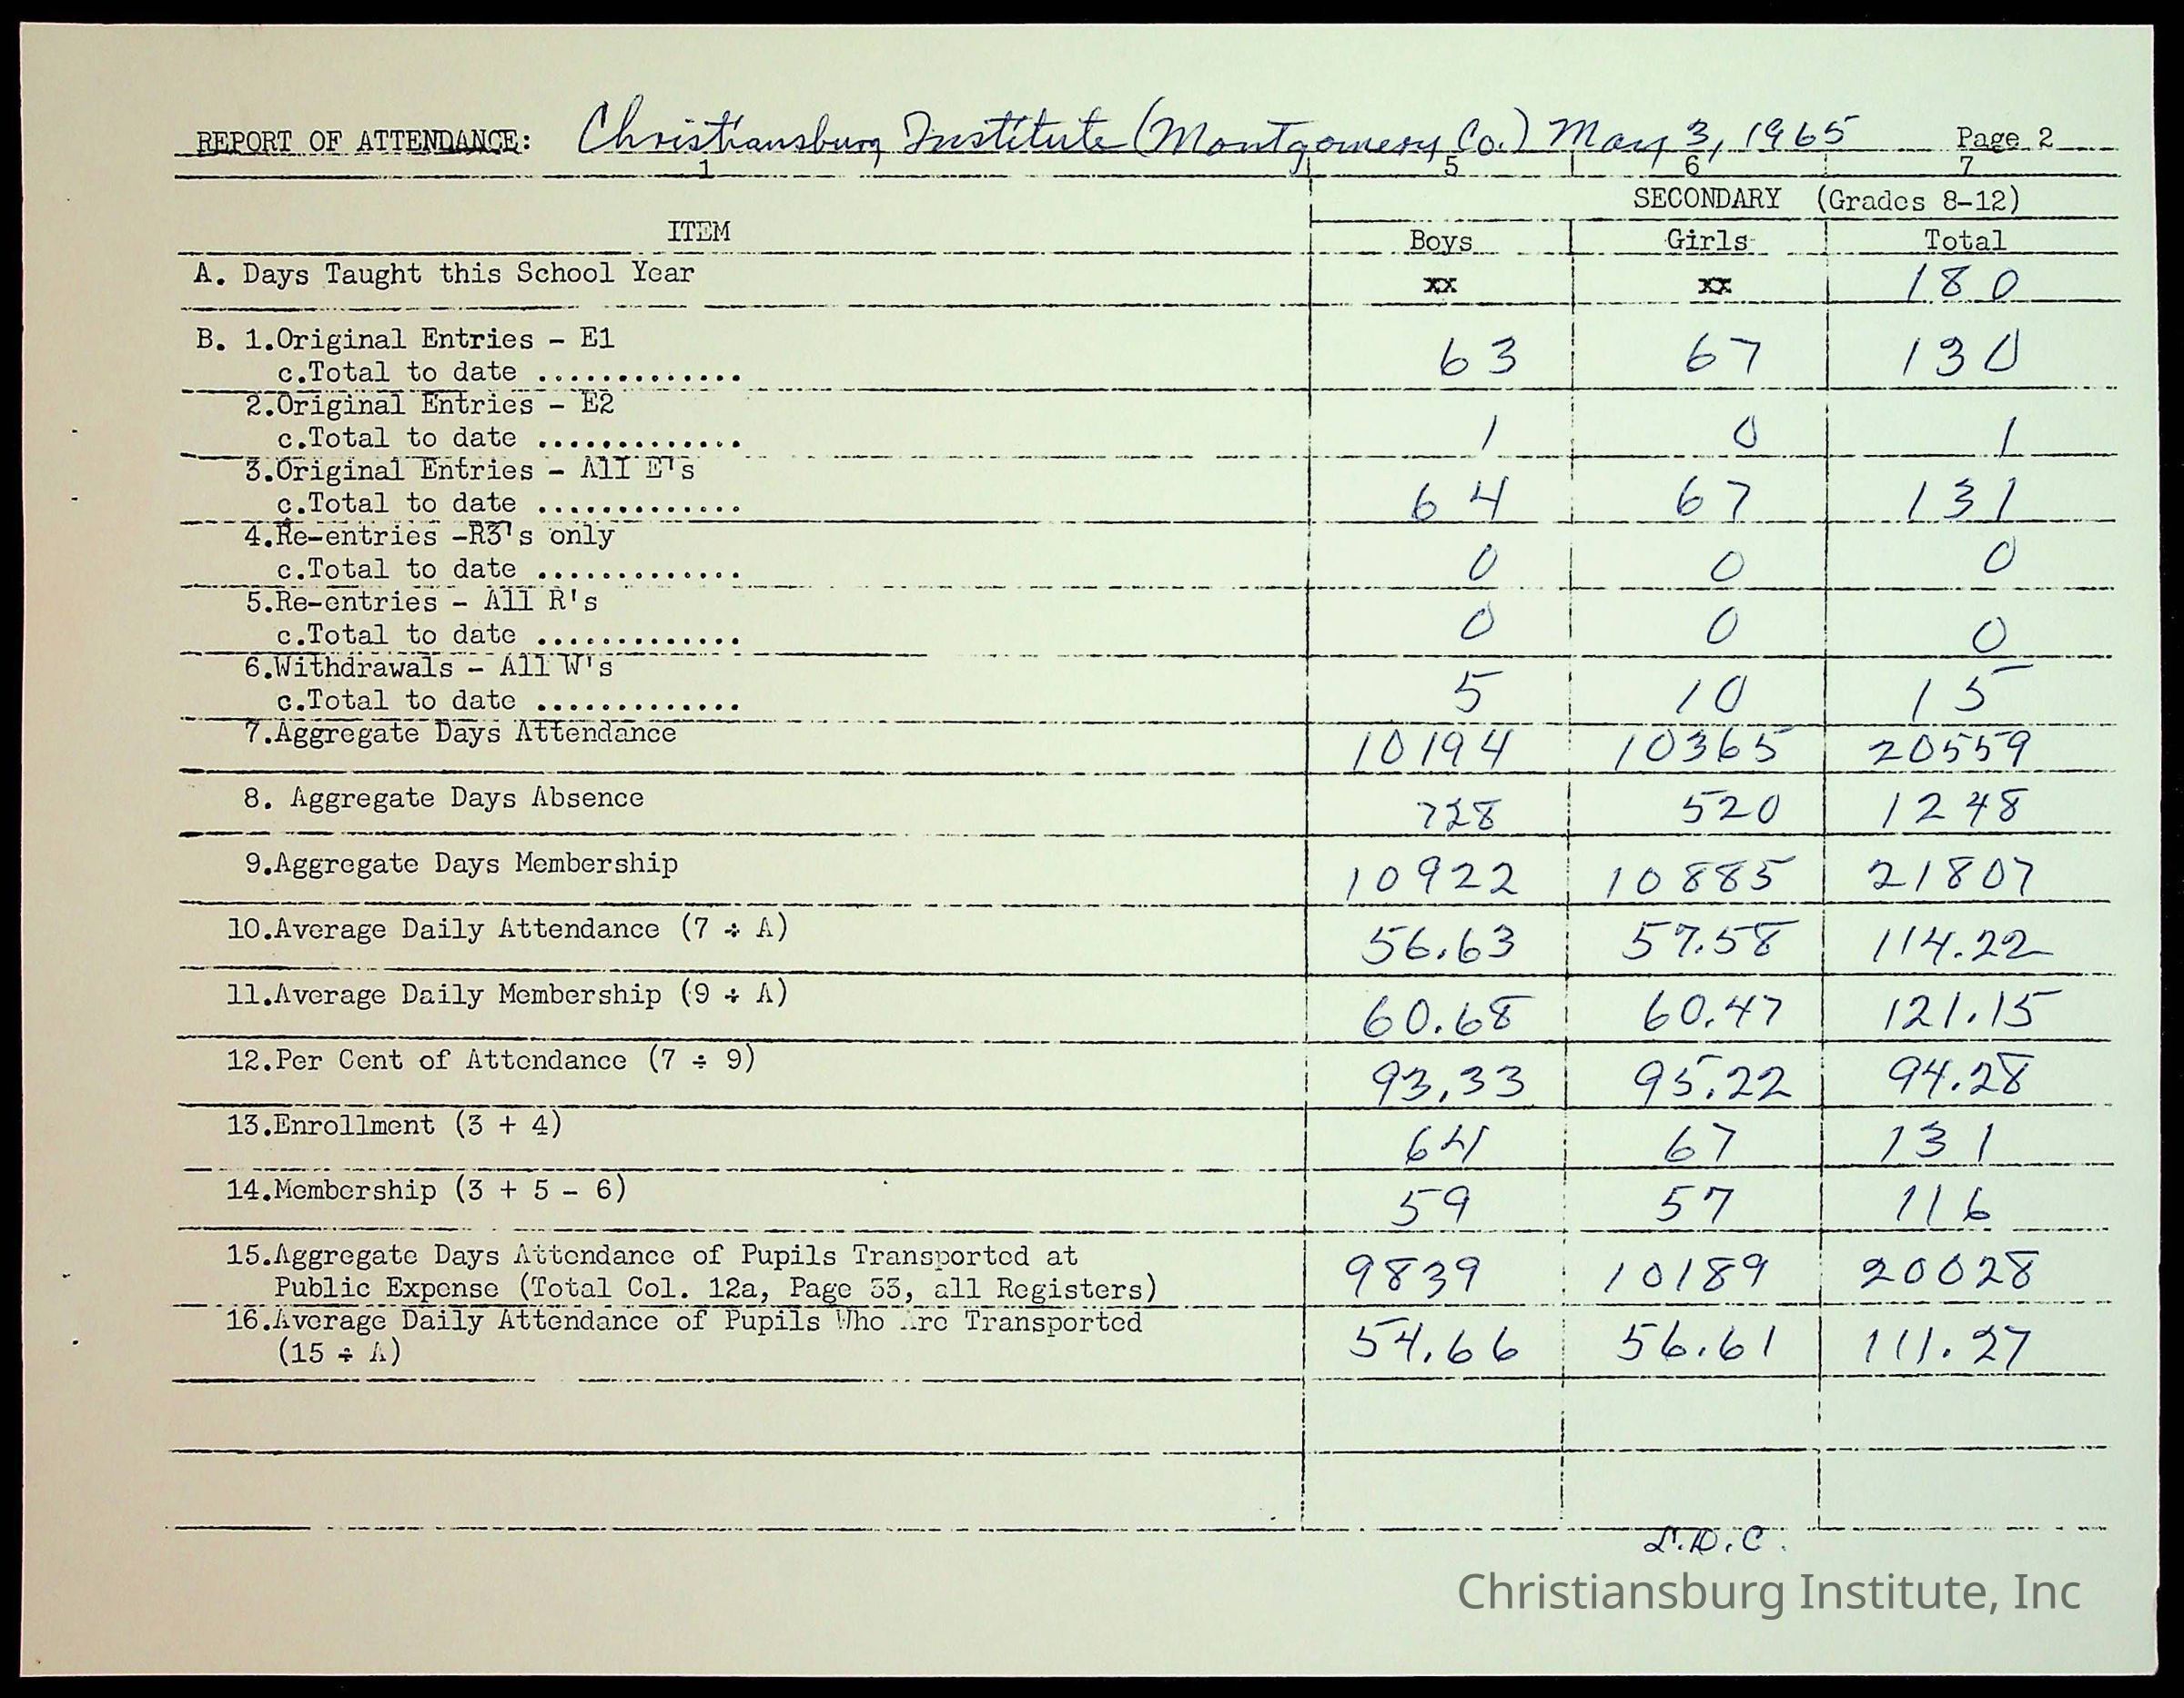 REPORT OF ATTENDANCE: Christiansburg Institute (Montgomery Co.) May 3, 1965 Page 2
1 5 6 7
SECONDARY (Grades 8-12)
ITEM Boys Girls Total
A. Days Taught this School Year xx xx 180
B. 1.Original Entries - E1
c.Total to date ............. 63 67 130
2.Original Entries - E2
c.Total to date ............. 1 0 1
3.Original Entries - All E's
c.Total to date ............. 64 67 131
4.Re-entries -R3's only
c.Total to date ............. 0 0 0
5.Re-entries - All R's
c.Total to date ............. 0 0 0
6.Withdrawals - All W's
c.Total to date ............. 5 10 15
7.Aggregate Days Attendance 10194 10365 20559
8. Aggregate Days Absence 728 520 1248
9.Aggregate Days Membership 10922 10885 21807
10.Average Daily Attendance (7 ÷ A) 56.63 57.58 114.22
11.Average Daily Membership (9 ÷ A) 60.68 60.47 121.15
12.Per Cent of Attendance (7 ÷ 9) 93.33 95.22 94.28
13.Enrollment (3 + 4) 64 67 131
14.Membership (3 + 5 - 6) 59 57 116
15.Aggregate Days Attendance of Pupils Transported at
Public Expense (Total Col. 12a, Page 33, all Registers) 9839 10189 20028
16.Average Daily Attendance of Pupils Who Are Transported
(15 ÷ A) 54.66 56.61 111.27
L.D.C.
Christiansburg Institute, Inc